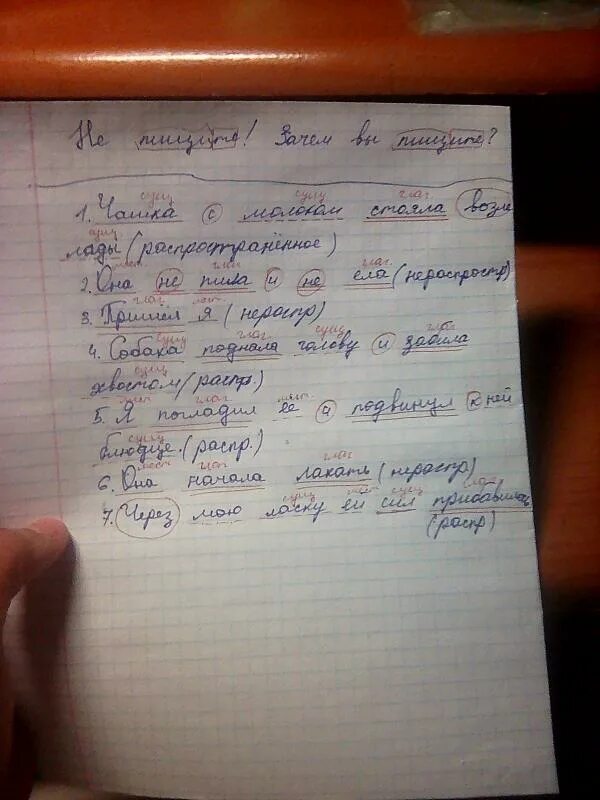 Не пищите! Зачем вы пищите?
сущ сущ глаг.
1. Чашка с молоком стояла возле
сущ
лады (распространённое)
мест. глаг глаг.
2. Она не пила и не ела (нераспростр)
глаг мест.
3. Пришёл я (нераспр)
сущ глаг. сущ глаг
4. Собака подняла голову и забила
сущ
хвостом (распр.)
мест глаг мест.
5. Я погладил её и подвинул к ней
сущ
блюдце. (распр.)
мест глаг глаг
6. Она начала лакать (нераспр)
сущ мест сущ глаг
7. Через мою ласку ей сил прибавилось
(распр)